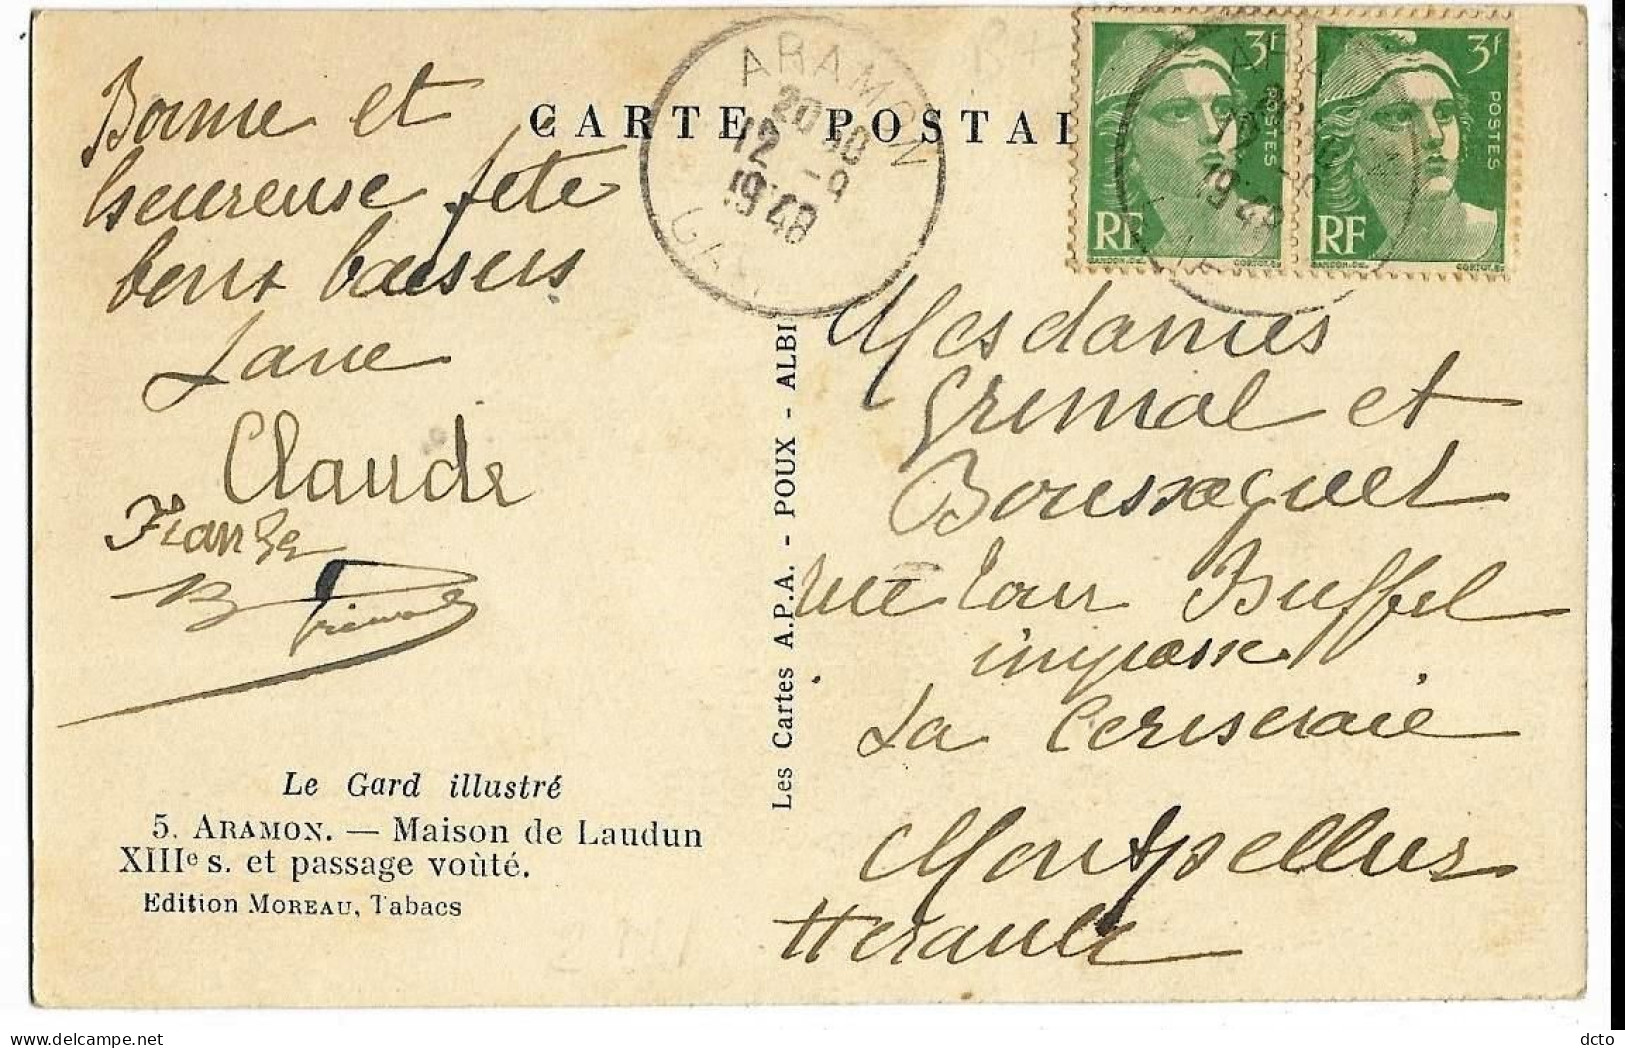 CARTE POSTAL
ARAMON
20 30
12 -9
1948
GARD
3f
POSTES
RF
3f
POSTES
RF
Bonne et
heureuse fête
bons baisers
Jane
Claude
France
Grimal
Le Gard illustré
5. ARAMON. — Maison de Laudun
XIIIe s. et passage voûté.
Edition MOREAU, Tabacs
Les Cartes A.P.A. - POUX - ALBI
Mesdames
Grimal et
Boussaguet
rue Tour Buffel
impasse
La Ceriseraie
Montpellier
Herault
dcto